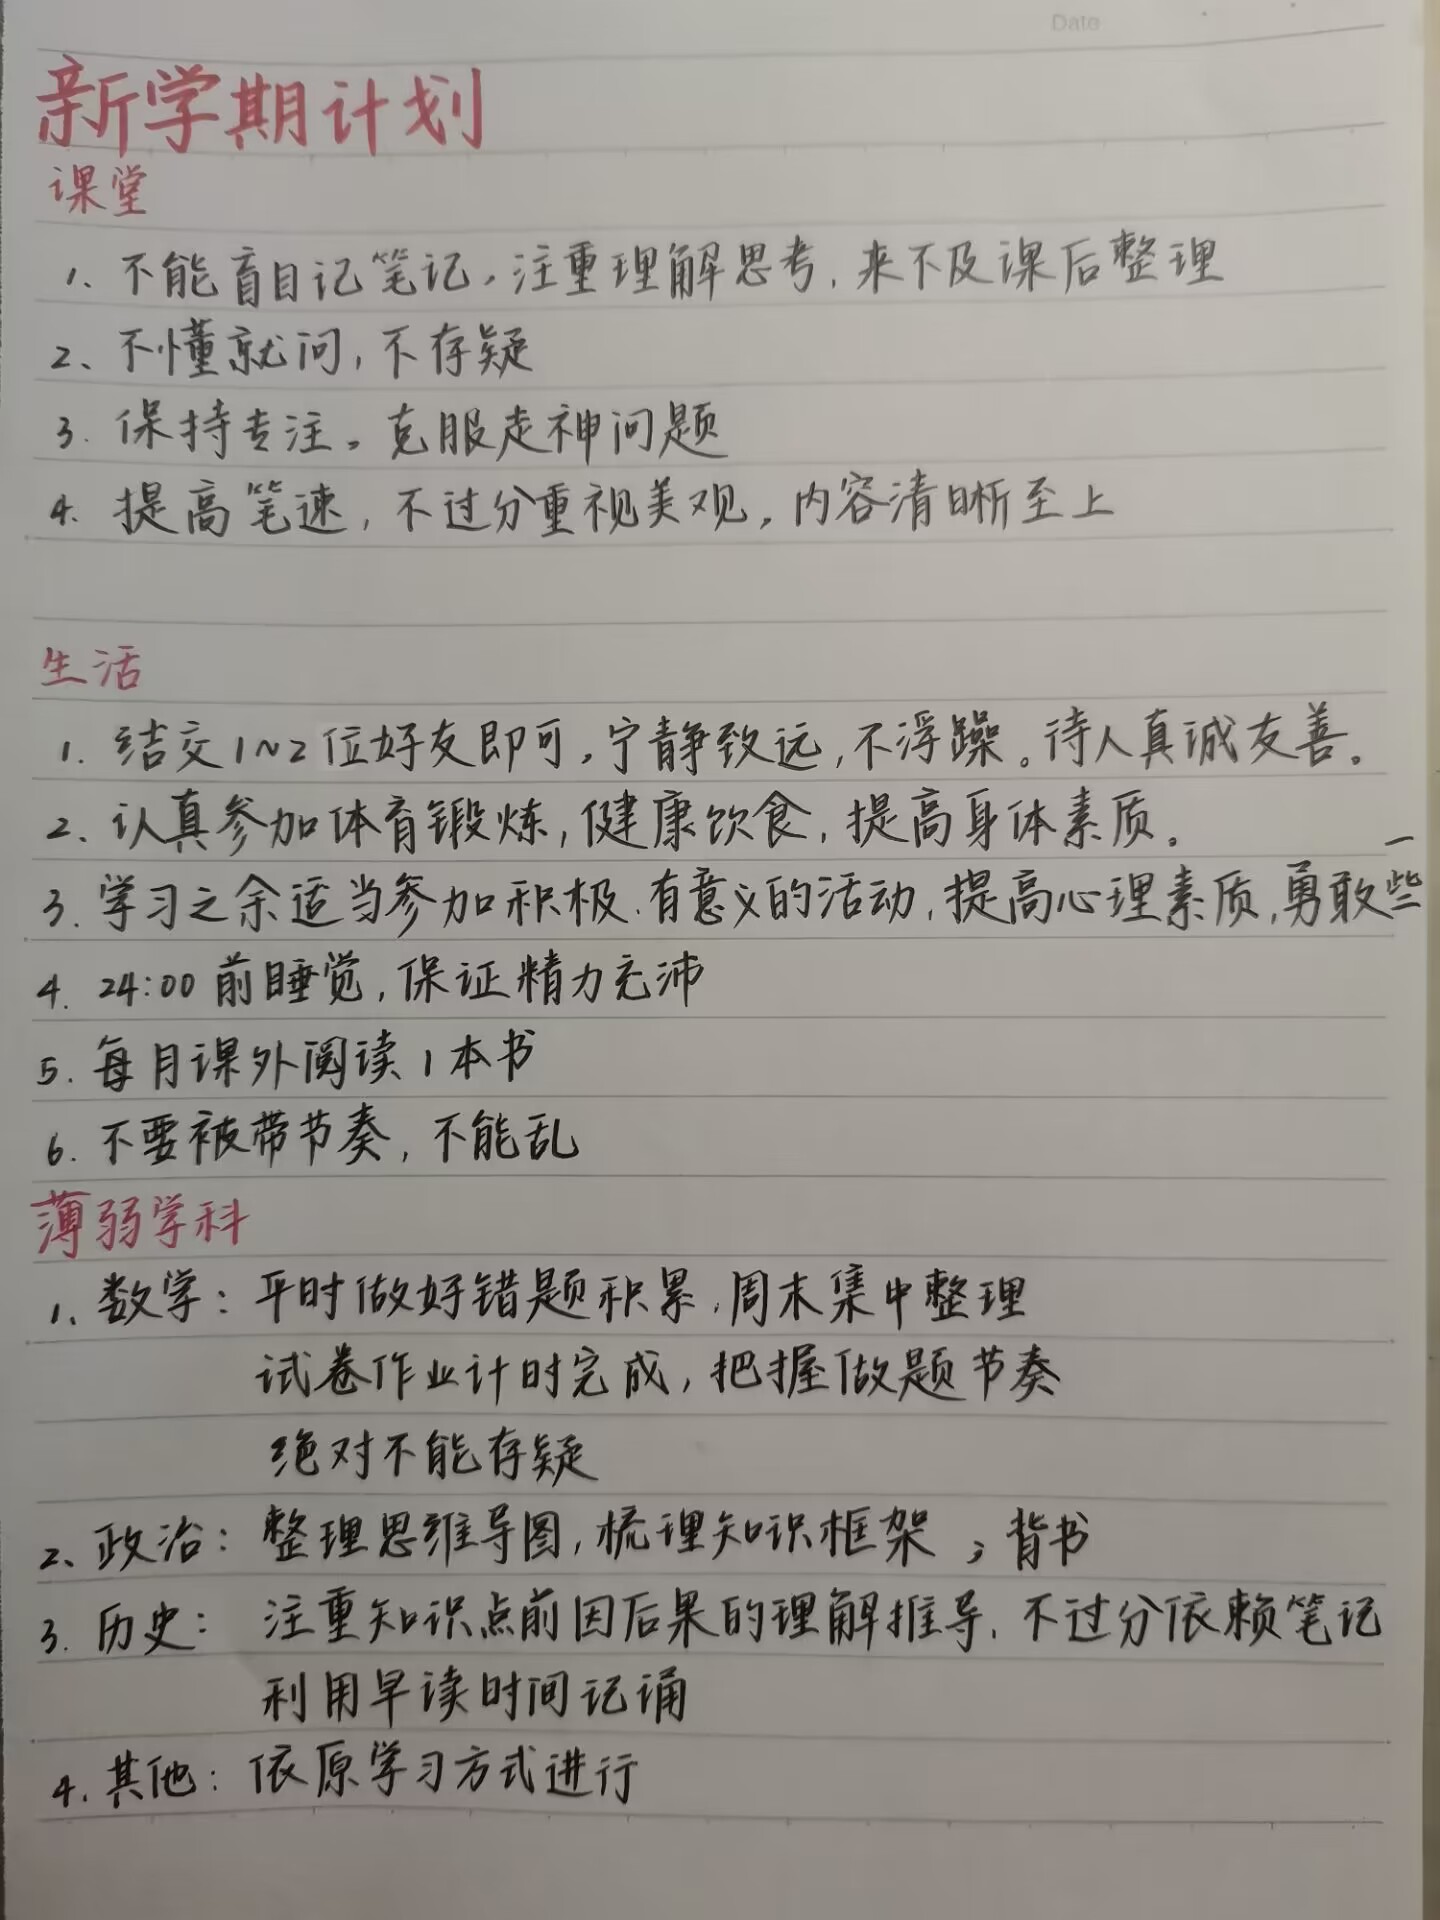 Date
新学期计划
课堂
1、不能盲目记笔记，注重理解思考，来不及课后整理
2、不懂就问，不存疑
3.保持专注。克服走神问题
4.提高笔速，不过分重视美观，内容清晰至上
生活
1.结交1~2位好友即可，宁静致远，不浮躁。待人真诚友善。
2、认真参加体育锻炼，健康饮食，提高身体素质。
3.学习之余适当参加积极、有意义的活动，提高心理素质，勇敢一些
4.24:00前睡觉，保证精力充沛
5.每月课外阅读1本书
6.不要被带节奏，不能乱
薄弱学科
1、数学：平时做好错题积累，周末集中整理
试卷作业计时完成，把握做题节奏
绝对不能存疑
2、政治：整理思维导图，梳理知识框架；背书
3.历史：注重知识点前因后果的理解推导，不过分依赖笔记
利用早读时间记诵
4.其他：依原学习方式进行